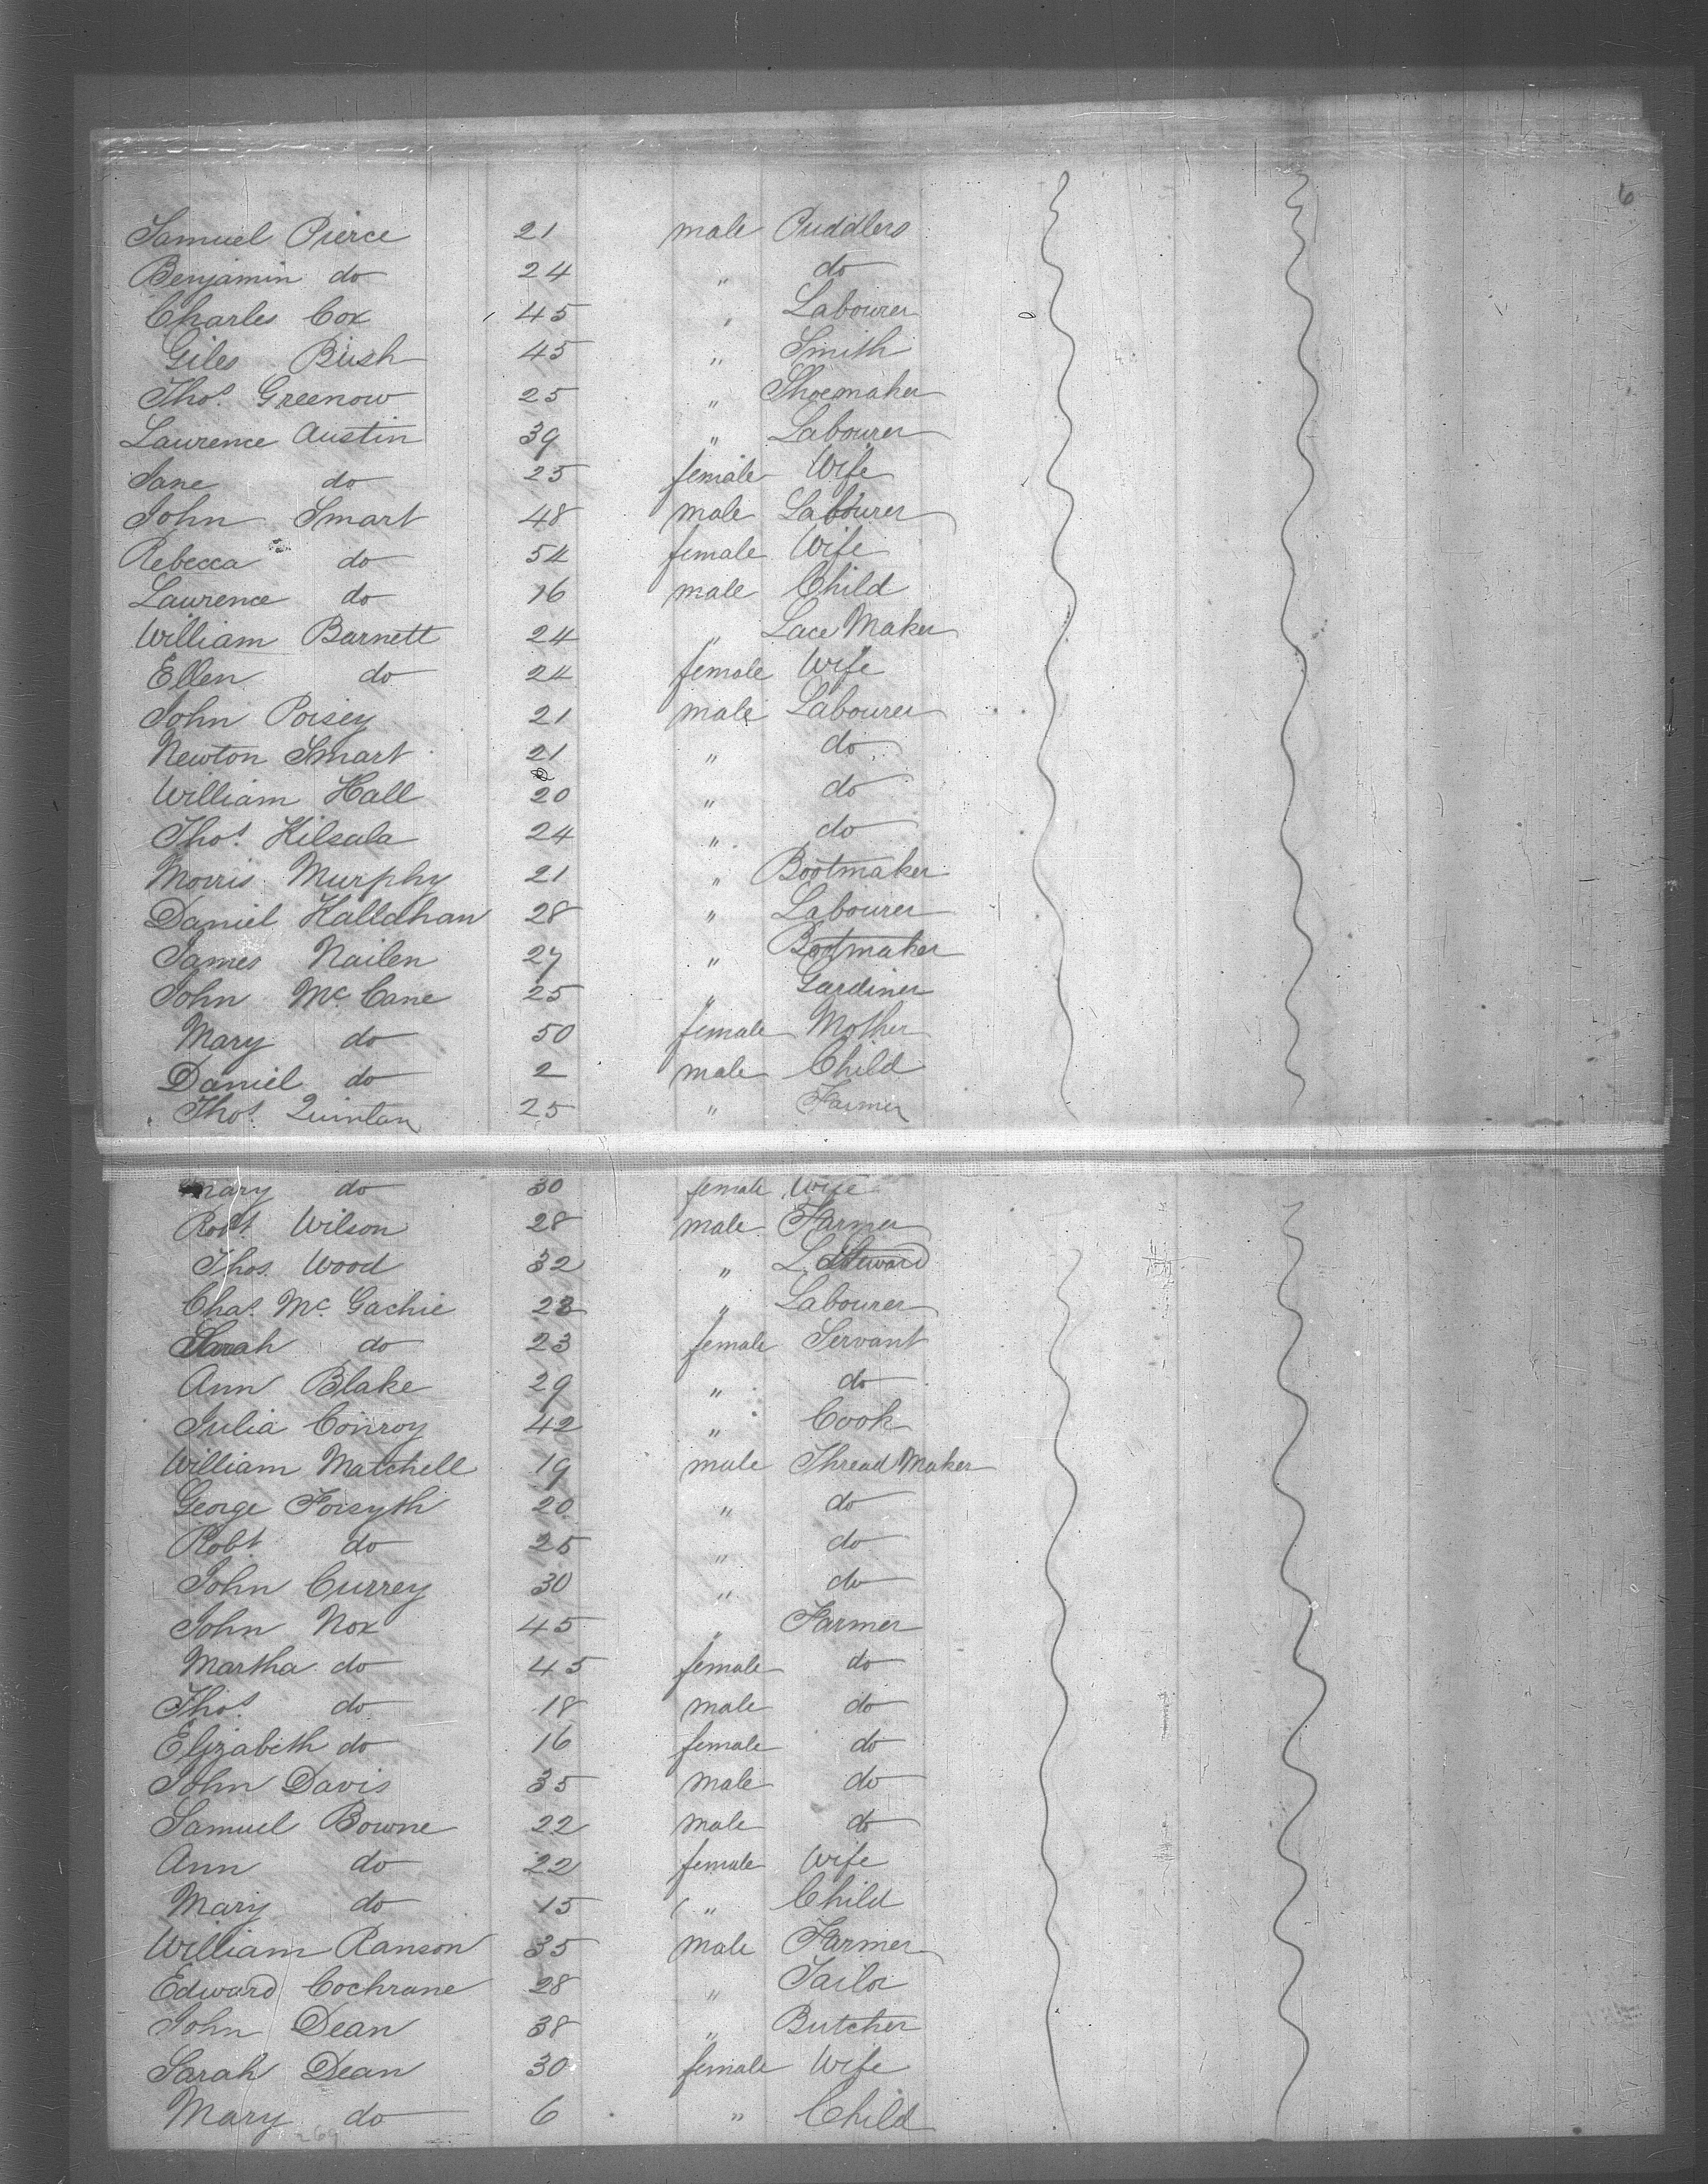 6
Samuel Pierce 21 male Puddlers
Benjamin do 24 " do
Charles Cox 45 " Labourer
Giles Bush 45 " Smith
Thos. Greenow 25 " Shoemaker
Laurence Austin 39 " Labourer
Jane do 25 female Wife
John Smart 48 male Labourer
Rebecca do 54 female Wife
Laurence do 16 male Child
William Barnett 24 " Lace Maker
Ellen do 24 female Wife
John Poisey 21 male Labourer
Newton Smart 21 " do
William Hall 20 " do
Thos. Kilsala 24 " do
Morris Murphy 21 " Bootmaker
Daniel Halldhan 28 " Labourer
James Nailen 27 " Bootmaker
John Mc. Cane 25 " Gardiner
Mary do 50 female Mother
Daniel do 2 male Child
Thos. Quinlan 25 " Farmer
Mary do 30 female Wife
Robt. Wilson 28 male Farmer
Thos. Wood 32 " L. Steward
Chas. Mc. Gachie 23 " Labourer
Sarah do 23 female Servant
Ann Blake 29 " do
Julia Conroy 42 " Cook
William Matchell 19 male Thread Maker
George Forsyth 20 " do
Robt do 25 " do
John Currey 30 " do
John Nox 45 " Farmer
Martha do 45 female do
Thos. do 18 male do
Elizabeth do 16 female do
John Davis 35 male do
Samuel Bowne 22 male do
Ann do 22 female Wife
Mary do 15 " Child
William Ranson 35 male Farmer
Edward Cochrane 28 " Tailor
John Dean 38 " Butcher
Sarah Dean 30 female Wife
Mary do 6 " Child